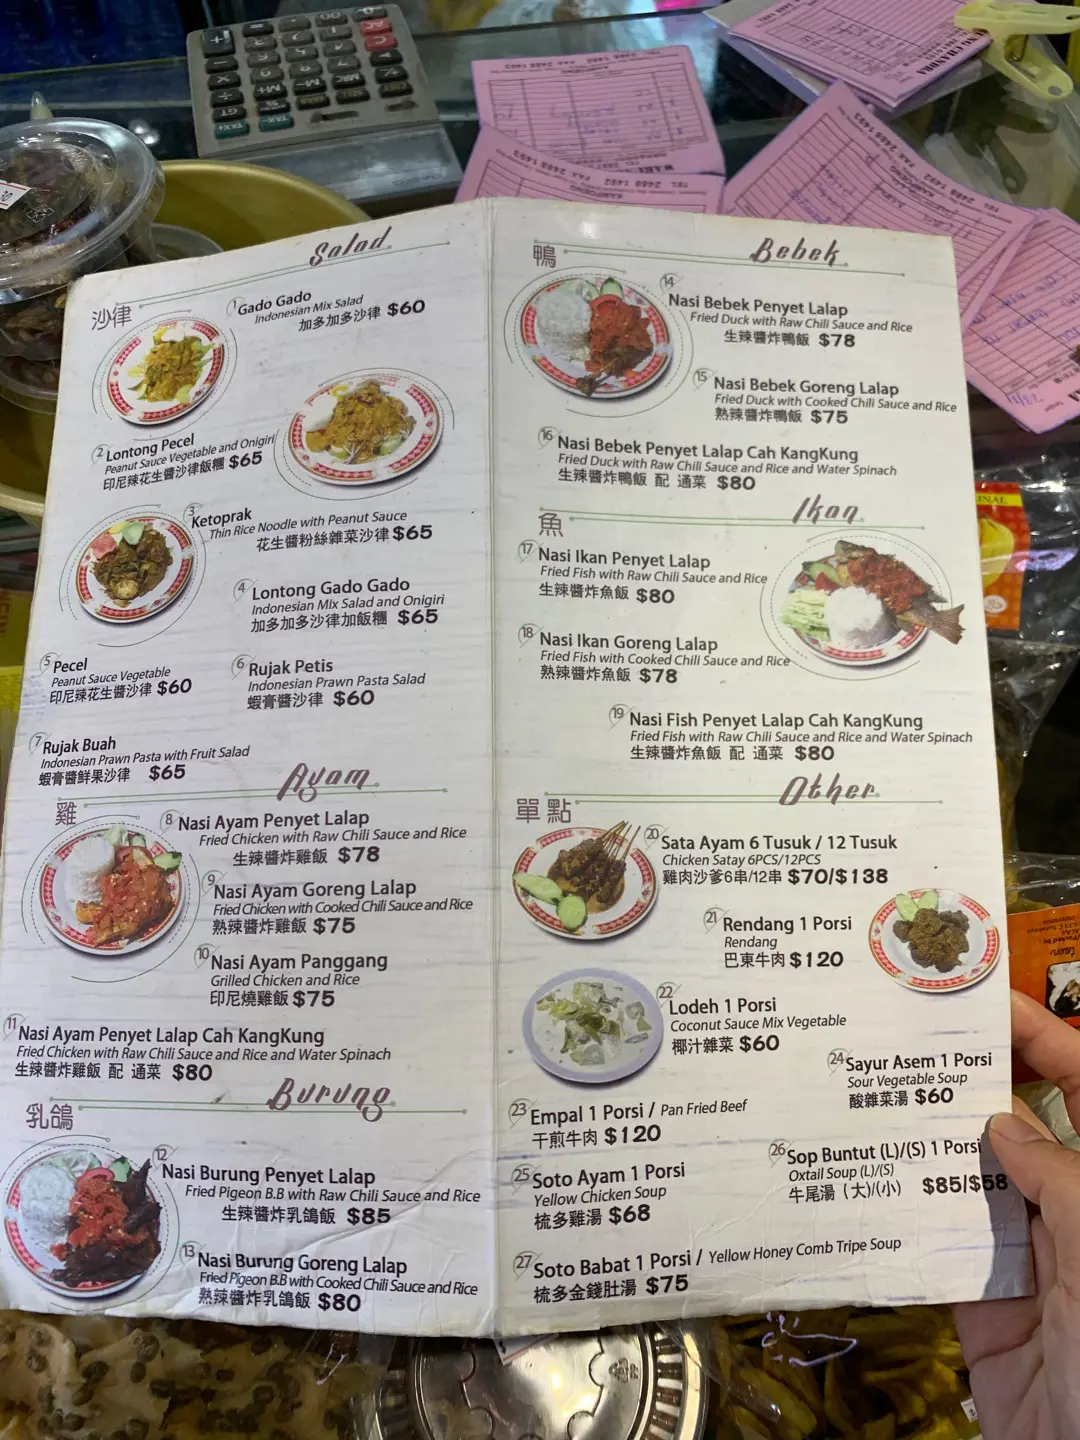 Salad
沙律
1 Gado Gado
Indonesian Mix Salad
加多加多沙律 $60
2 Lontong Pecel
Peanut Sauce Vegetable and Onigiri
印尼辣花生醬沙律飯糰 $65
3 Ketoprak
Thin Rice Noodle with Peanut Sauce
花生醬粉絲雜菜沙律 $65
4 Lontong Gado Gado
Indonesian Mix Salad and Onigiri
加多加多沙律加飯糰 $65
5 Pecel
Peanut Sauce Vegetable
印尼辣花生醬沙律 $60
6 Rujak Petis
Indonesian Prawn Pasta Salad
蝦膏醬沙律 $60
7 Rujak Buah
Indonesian Prawn Pasta with Fruit Salad
蝦膏醬鮮果沙律 $65
Ayam
雞
8 Nasi Ayam Penyet Lalap
Fried Chicken with Raw Chili Sauce and Rice
生辣醬炸雞飯 $78
9 Nasi Ayam Goreng Lalap
Fried Chicken with Cooked Chili Sauce and Rice
熟辣醬炸雞飯 $75
10 Nasi Ayam Panggang
Grilled Chicken and Rice
印尼燒雞飯 $75
11 Nasi Ayam Penyet Lalap Cah KangKung
Fried Chicken with Raw Chili Sauce and Rice and Water Spinach
生辣醬炸雞飯 配 通菜 $80
Burung
乳鴿
12 Nasi Burung Penyet Lalap
Fried Pigeon B.B with Raw Chili Sauce and Rice
生辣醬炸乳鴿飯 $85
13 Nasi Burung Goreng Lalap
Fried Pigeon B.B with Cooked Chili Sauce and Rice
熟辣醬炸乳鴿飯 $80
Bebek
鴨
14 Nasi Bebek Penyet Lalap
Fried Duck with Raw Chili Sauce and Rice
生辣醬炸鴨飯 $78
15 Nasi Bebek Goreng Lalap
Fried Duck with Cooked Chili Sauce and Rice
熟辣醬炸鴨飯 $75
16 Nasi Bebek Penyet Lalap Cah KangKung
Fried Duck with Raw Chili Sauce and Rice and Water Spinach
生辣醬炸鴨飯 配 通菜 $80
Ikan
魚
17 Nasi Ikan Penyet Lalap
Fried Fish with Raw Chili Sauce and Rice
生辣醬炸魚飯 $80
18 Nasi Ikan Goreng Lalap
Fried Fish with Cooked Chili Sauce and Rice
熟辣醬炸魚飯 $78
19 Nasi Fish Penyet Lalap Cah KangKung
Fried Fish with Raw Chili Sauce and Rice and Water Spinach
生辣醬炸魚飯 配 通菜 $80
Other
單點
20 Sata Ayam 6 Tusuk / 12 Tusuk
Chicken Satay 6PCS/12PCS
雞肉沙爹6串/12串 $70/$138
21 Rendang 1 Porsi
Rendang
巴東牛肉 $120
22 Lodeh 1 Porsi
Coconut Sauce Mix Vegetable
椰汁雜菜 $60
24 Sayur Asem 1 Porsi
Sour Vegetable Soup
酸雜菜湯 $60
23 Empal 1 Porsi / Pan Fried Beef
干煎牛肉 $120
25 Soto Ayam 1 Porsi
Yellow Chicken Soup
梳多雞湯 $68
26 Sop Buntut (L)/(S) 1 Porsi
Oxtail Soup (L)/(S)
牛尾湯（大)/(小) $85/$58
27 Soto Babat 1 Porsi / Yellow Honey Comb Tripe Soup
梳多金錢肚湯 $75